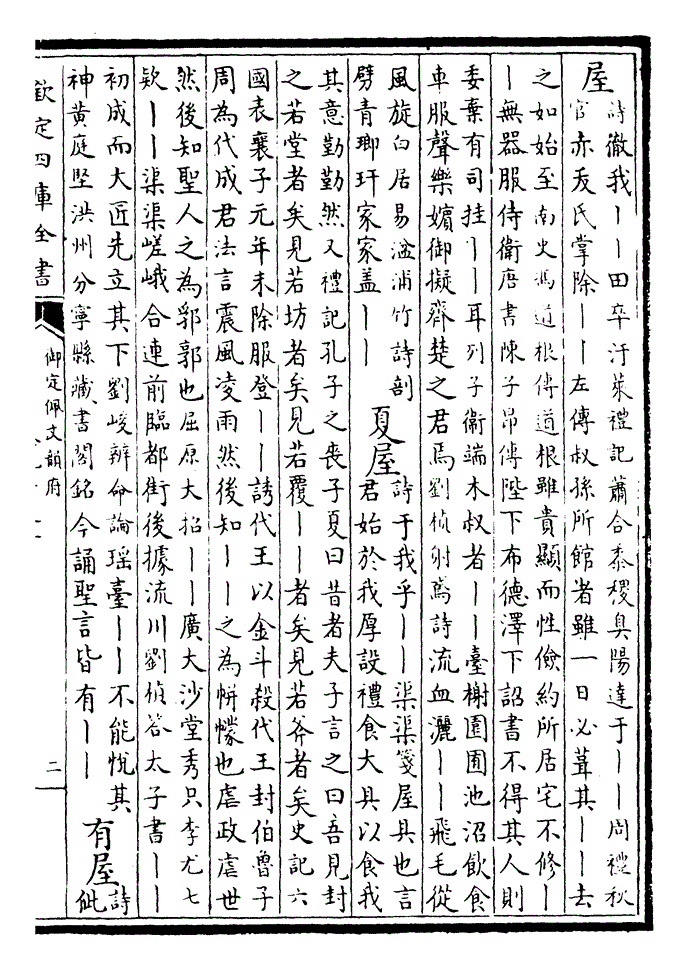 屋
詩徹我丨丨田卒汙萊禮記蕭合黍稷臭陽達于丨丨周禮秋
官赤犮氏掌除丨丨左傳叔孫所館者雖一日必葺其丨丨去
之如始至南史馮道根傳道根雖貴顯而性儉約所居宅不修丨
丨無器服侍衛唐書陳子昂傳陛下布德澤下詔書不得其人則
委棄有司挂丨丨耳列子衞端木叔者丨丨臺榭園囿池沼飲食
車服聲樂嬪御擬齊楚之君焉劉楨射鳶詩流血灑丨丨飛毛從
風旋白居易湓浦竹詩剖
劈青瑯玕家家盖丨丨
夏屋
詩于我乎丨丨渠渠箋屋具也言
君始於我厚設禮食大具以食我
其意勤勤然又禮記孔子之喪子夏曰昔者夫子言之曰吾見封
之若堂者矣見若坊者矣見若覆丨丨者矣見若斧者矣史記六
國表襄子元年未除服登丨丨誘代王以金斗殺代王封伯魯子
周為代成君法言震風凌雨然後知丨丨之為帡幪也虐政虐世
然後知聖人之為郛郭也屈原大招丨丨廣大沙堂秀只李尤七
欵丨丨渠渠嵯峨合連前臨都街後據流川劉楨答太子書丨丨
初成而大匠先立其下劉峻辨命論瑶臺丨丨不能悅其
神黄庭堅洪州分寧縣藏書閣銘今誦聖言皆有丨丨
有屋
詩
佌
欽定四庫全書
御定佩文韻府
二